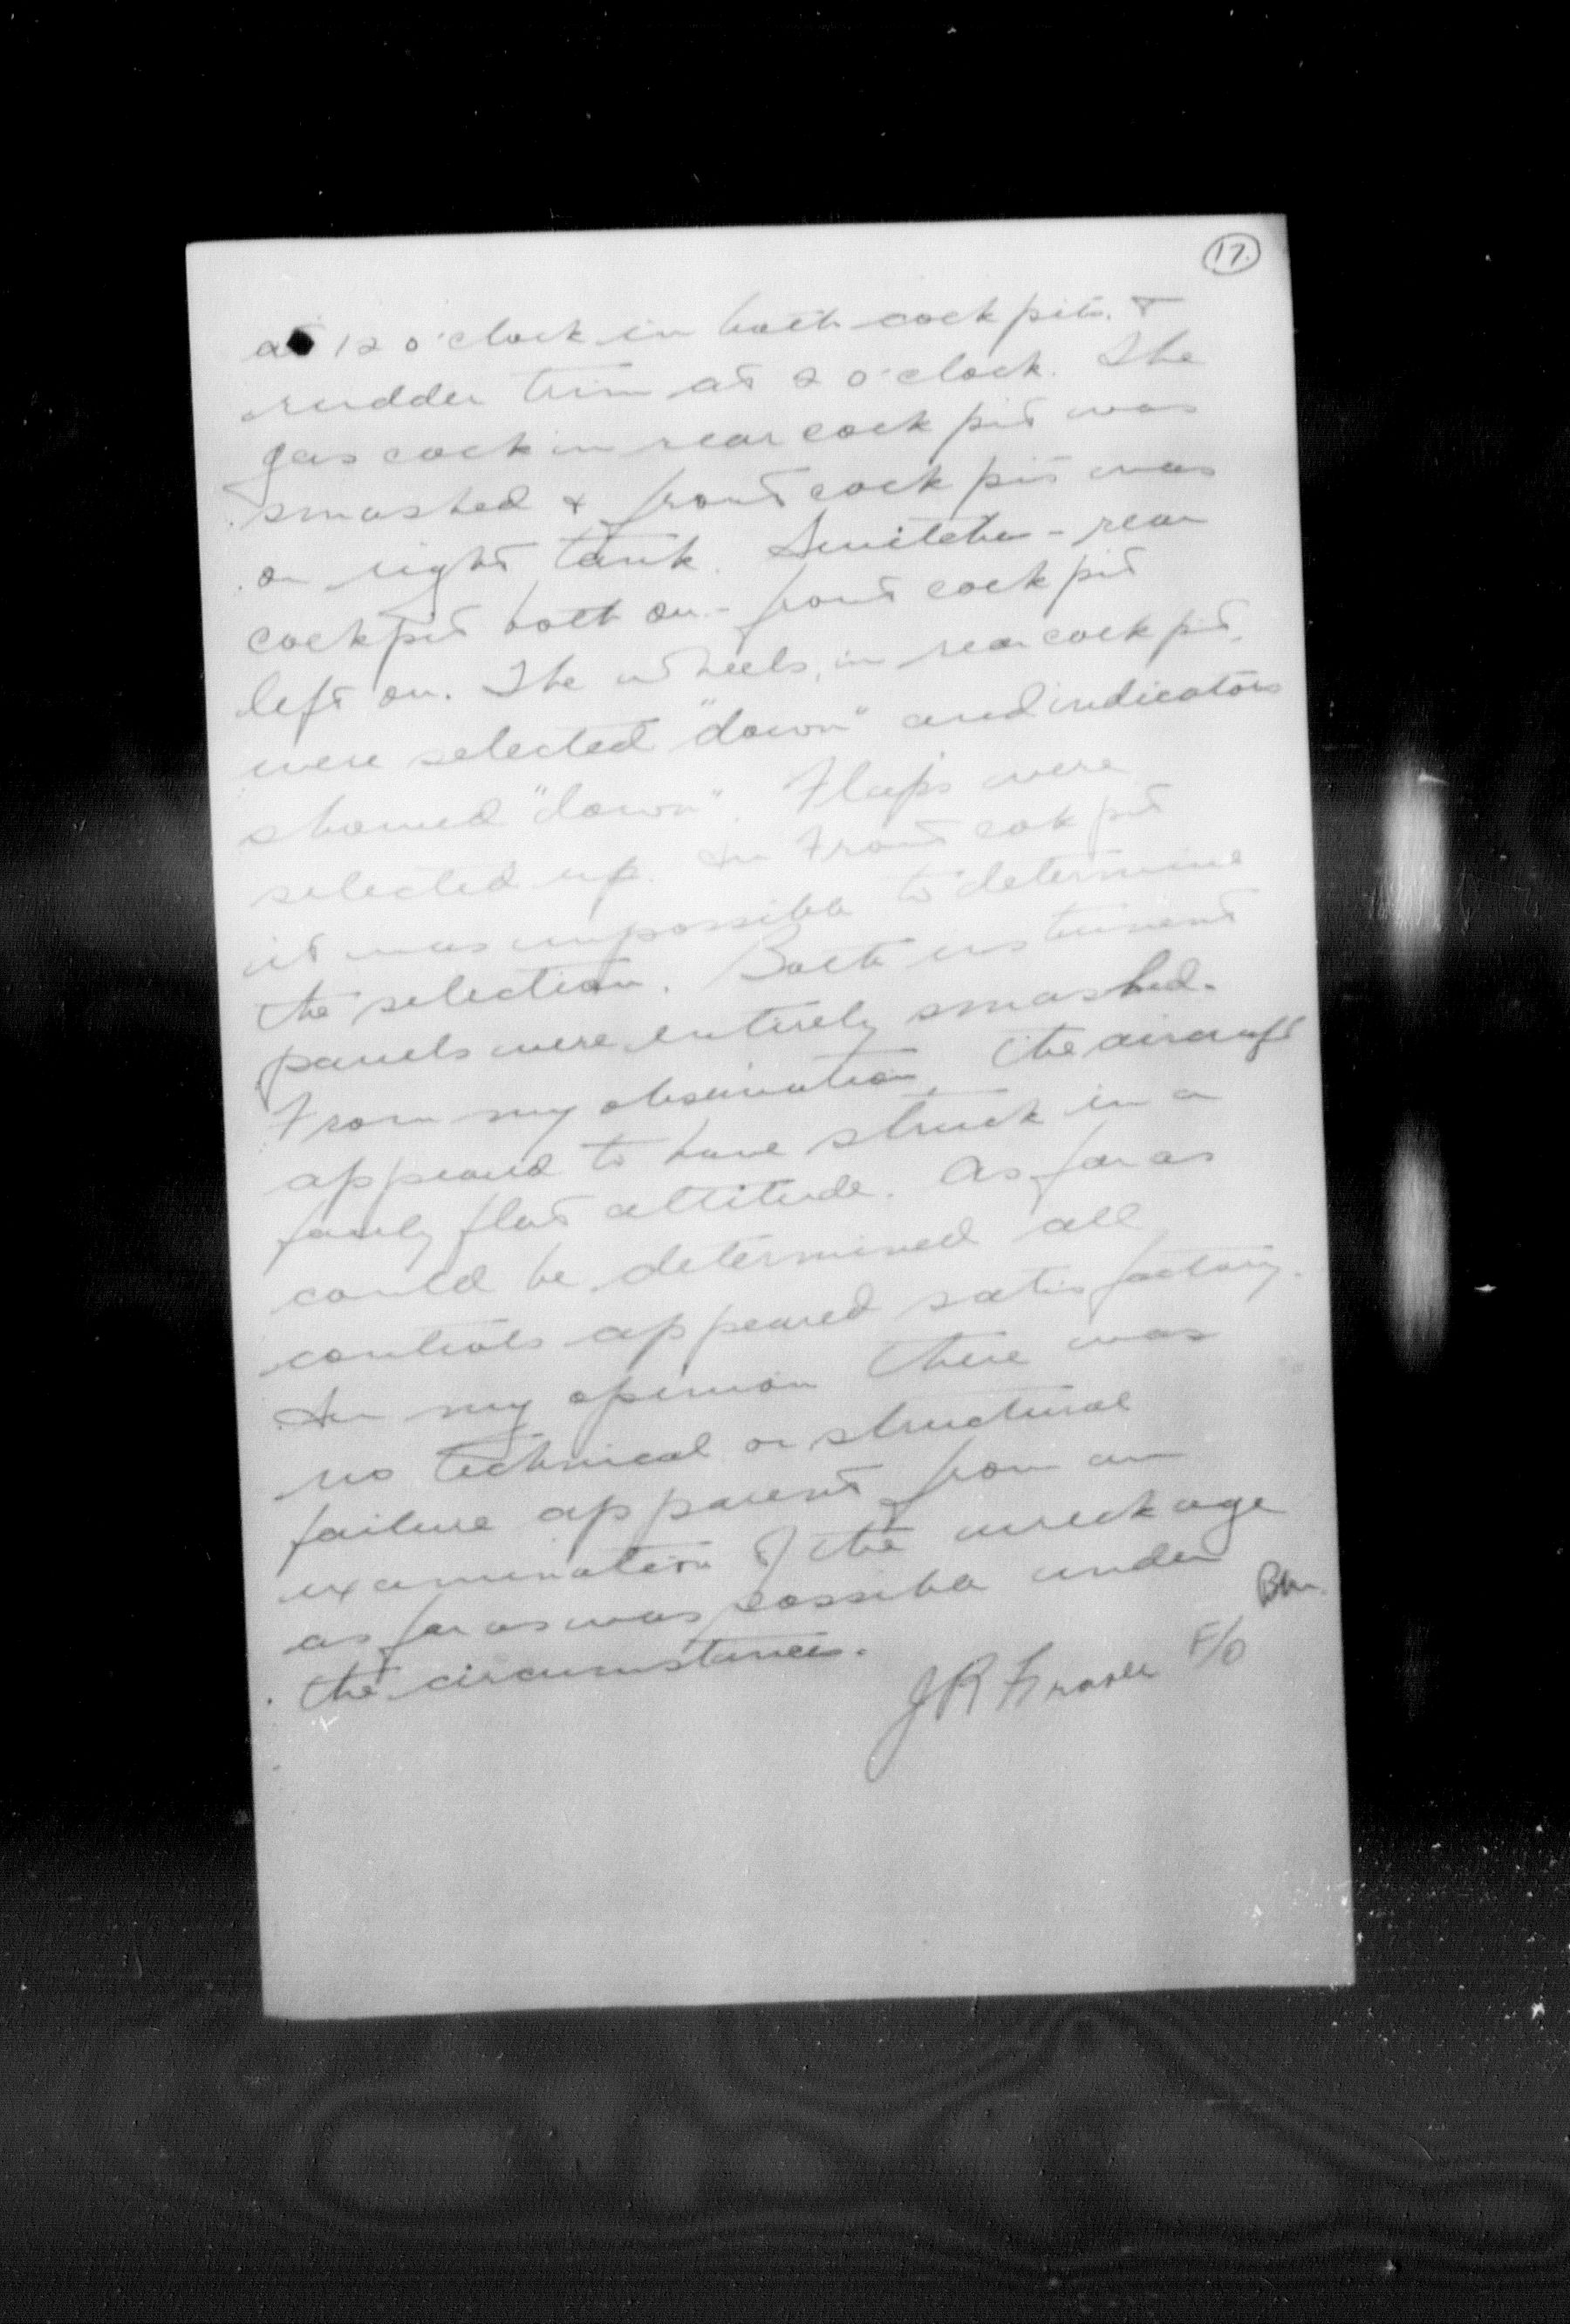 17.
at 12 o'clock in both cockpits. &
rudder trim at 2 o'clock. The
gas cock in rear cockpit was
smashed & front cockpit was
on right tank. Switches - rear
cockpit both on - front cockpit
left on. The wheels, in rear cockpit,
were selected "down" and indicators
showed "down". Flaps were
selected up. In Front cokpit
it was impossible to determine
the selection. Both instrument
panels were entirely smashed.
From my observation, the aircraft
appeared to have struck in a
fairly flat attitude. As far as
could be determined all
controls appeared satisfactory.
In my opinion there was
no technical or structural
failure apparent from an
examination of the wreckage
as far as was possible under
the circumstances.
J R Fraser F/O